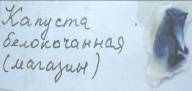 Капуста
белокочанная
(магазин)